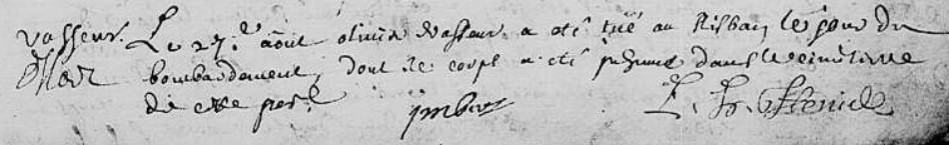 vasseur. Le 27.e aout olivier vasseur a eté tué au Risban le jour du
Mort bombardement, dont le corps a eté inhumé dans le cimetiere
de cette par.
imbert